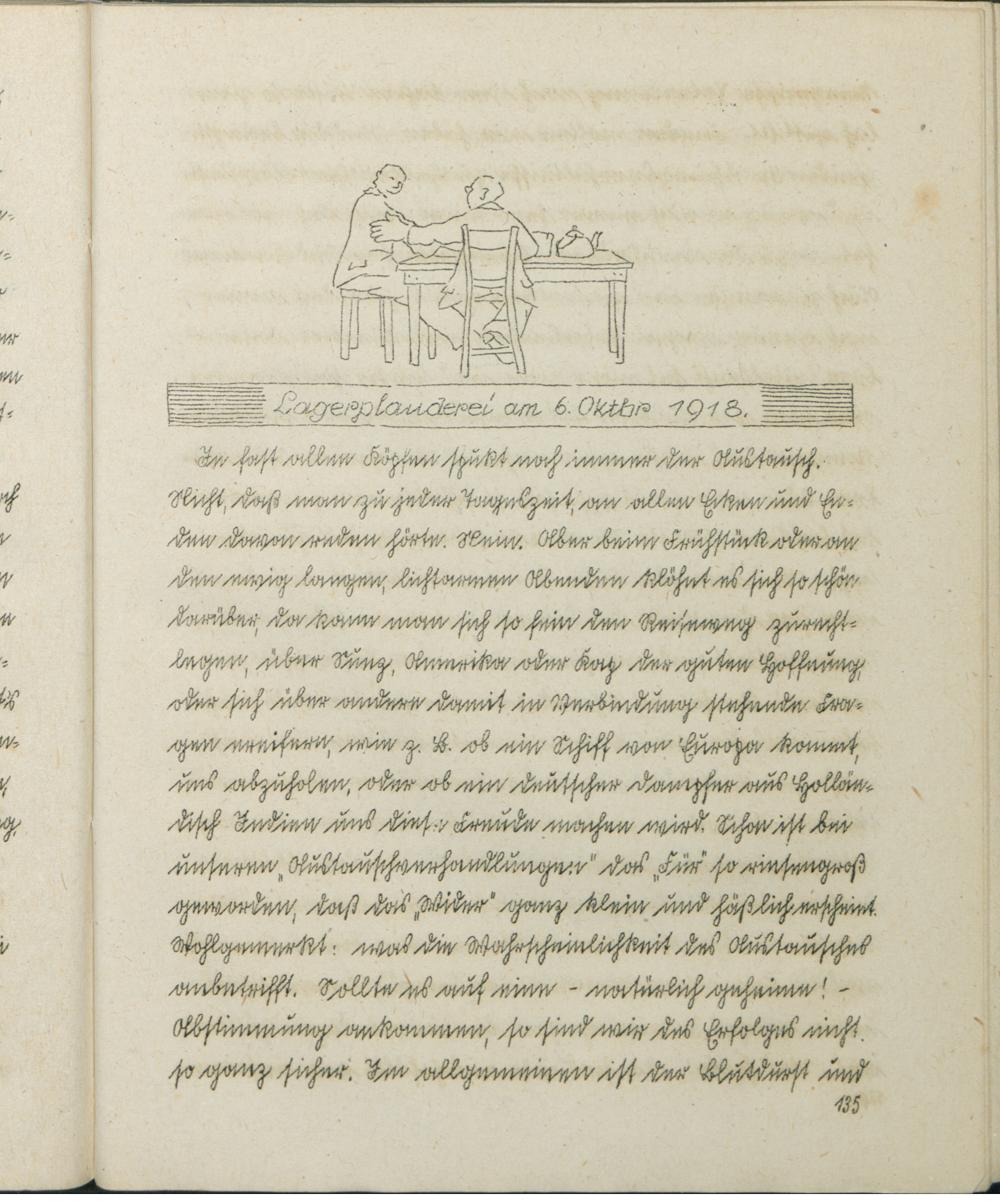 Lagerplauderei am 6. Oktbr 1918.
In fast allen Köpfen spukt noch immer der Austausch.
Nicht, daß man zu jeder Tageszeit, an allen Ecken und En-
den davon reden hörte. Nein. Aber beim Frühstück oder an
den ewig langen, lichtarmen Abenden klöhnt es sich so schön
darüber, da kann man sich so fein den Reiseweg zurecht-
legen, über Suez, Amerika oder Kap der guten Hoffnung,
oder sich über andere damit in Verbindung stehende Fra-
gen ereifern, wie z. B. ob ein Schiff von Europa kommt,
uns abzuholen, oder ob ein deutscher Dampfer aus Hollän-
disch Indien uns diese Freude machen wird. Schon ist bei
unseren „Austauschverhandlungen" das „Für" so riesengroß
geworden, daß das „Wider" ganz klein und häßlich erscheint.
Wohlgemerkt: was die Wahrscheinlichkeit des Austausches
anbetrifft. Sollte es auf eine - natürlich geheime! -
Abstimmung ankommen, so sind wir des Erfolges nicht
so ganz sicher. Im allgemeinen ist der Blutdurst und
135